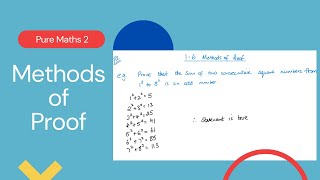 Pure Maths 2
Methods
of
Proof
1.6 Methods of Proof
e.g. Prove that the sum of two consecutive square numbers from
1² to 8² is an odd number
1²+2²=5
2²+3²=13
3²+4²=25
4²+5²=41
5²+6²=61
6²+7²=85
7²+8²=113
∴ Statement is true